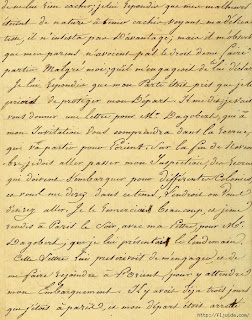 de ne lui rien cacher; je lui repondis que mes malheurs
etoient de nature à tenir cachés. Voyant ma delicatesse
il n'insista pas D'avantage, mais il m'obser
que mes parents n'avoient pas le droit de me faire
partir Malgré moi; qu'il m'engageoit de lui declarer
Je lui repondis que mon Parti étoit pris, que je le
priois de proteger mon Départ. Il me dit je vais
vous donner une Lettre pour Mr. Dagobert, qui à
mon Invitation Vous comprendra dans la Recrue
qui va partir pour Lorient. Sur la fin de Novem
bre, je dois aller passer mon Inspection, des Recrues
qui doivent S'embarquer pour differentes Colonies,
et vous me direz dans laquel Endroit où Vous
desirez aller. Je le remerciai Beaucoup, et je me
rendis à Paris le Soir, avec ma Lettre, pour Mr.
Dagobert, que je lui présentai le lendemain,
Cette Lettre lui prescrivoit de m'engager, et de
me faire rejoindre à L'orient, pour y attendre
mon Embarquement. Il y avoit déjà trois jours
que j'étois à paris, et mon départ étoit arrêté
http://vijuide.com/